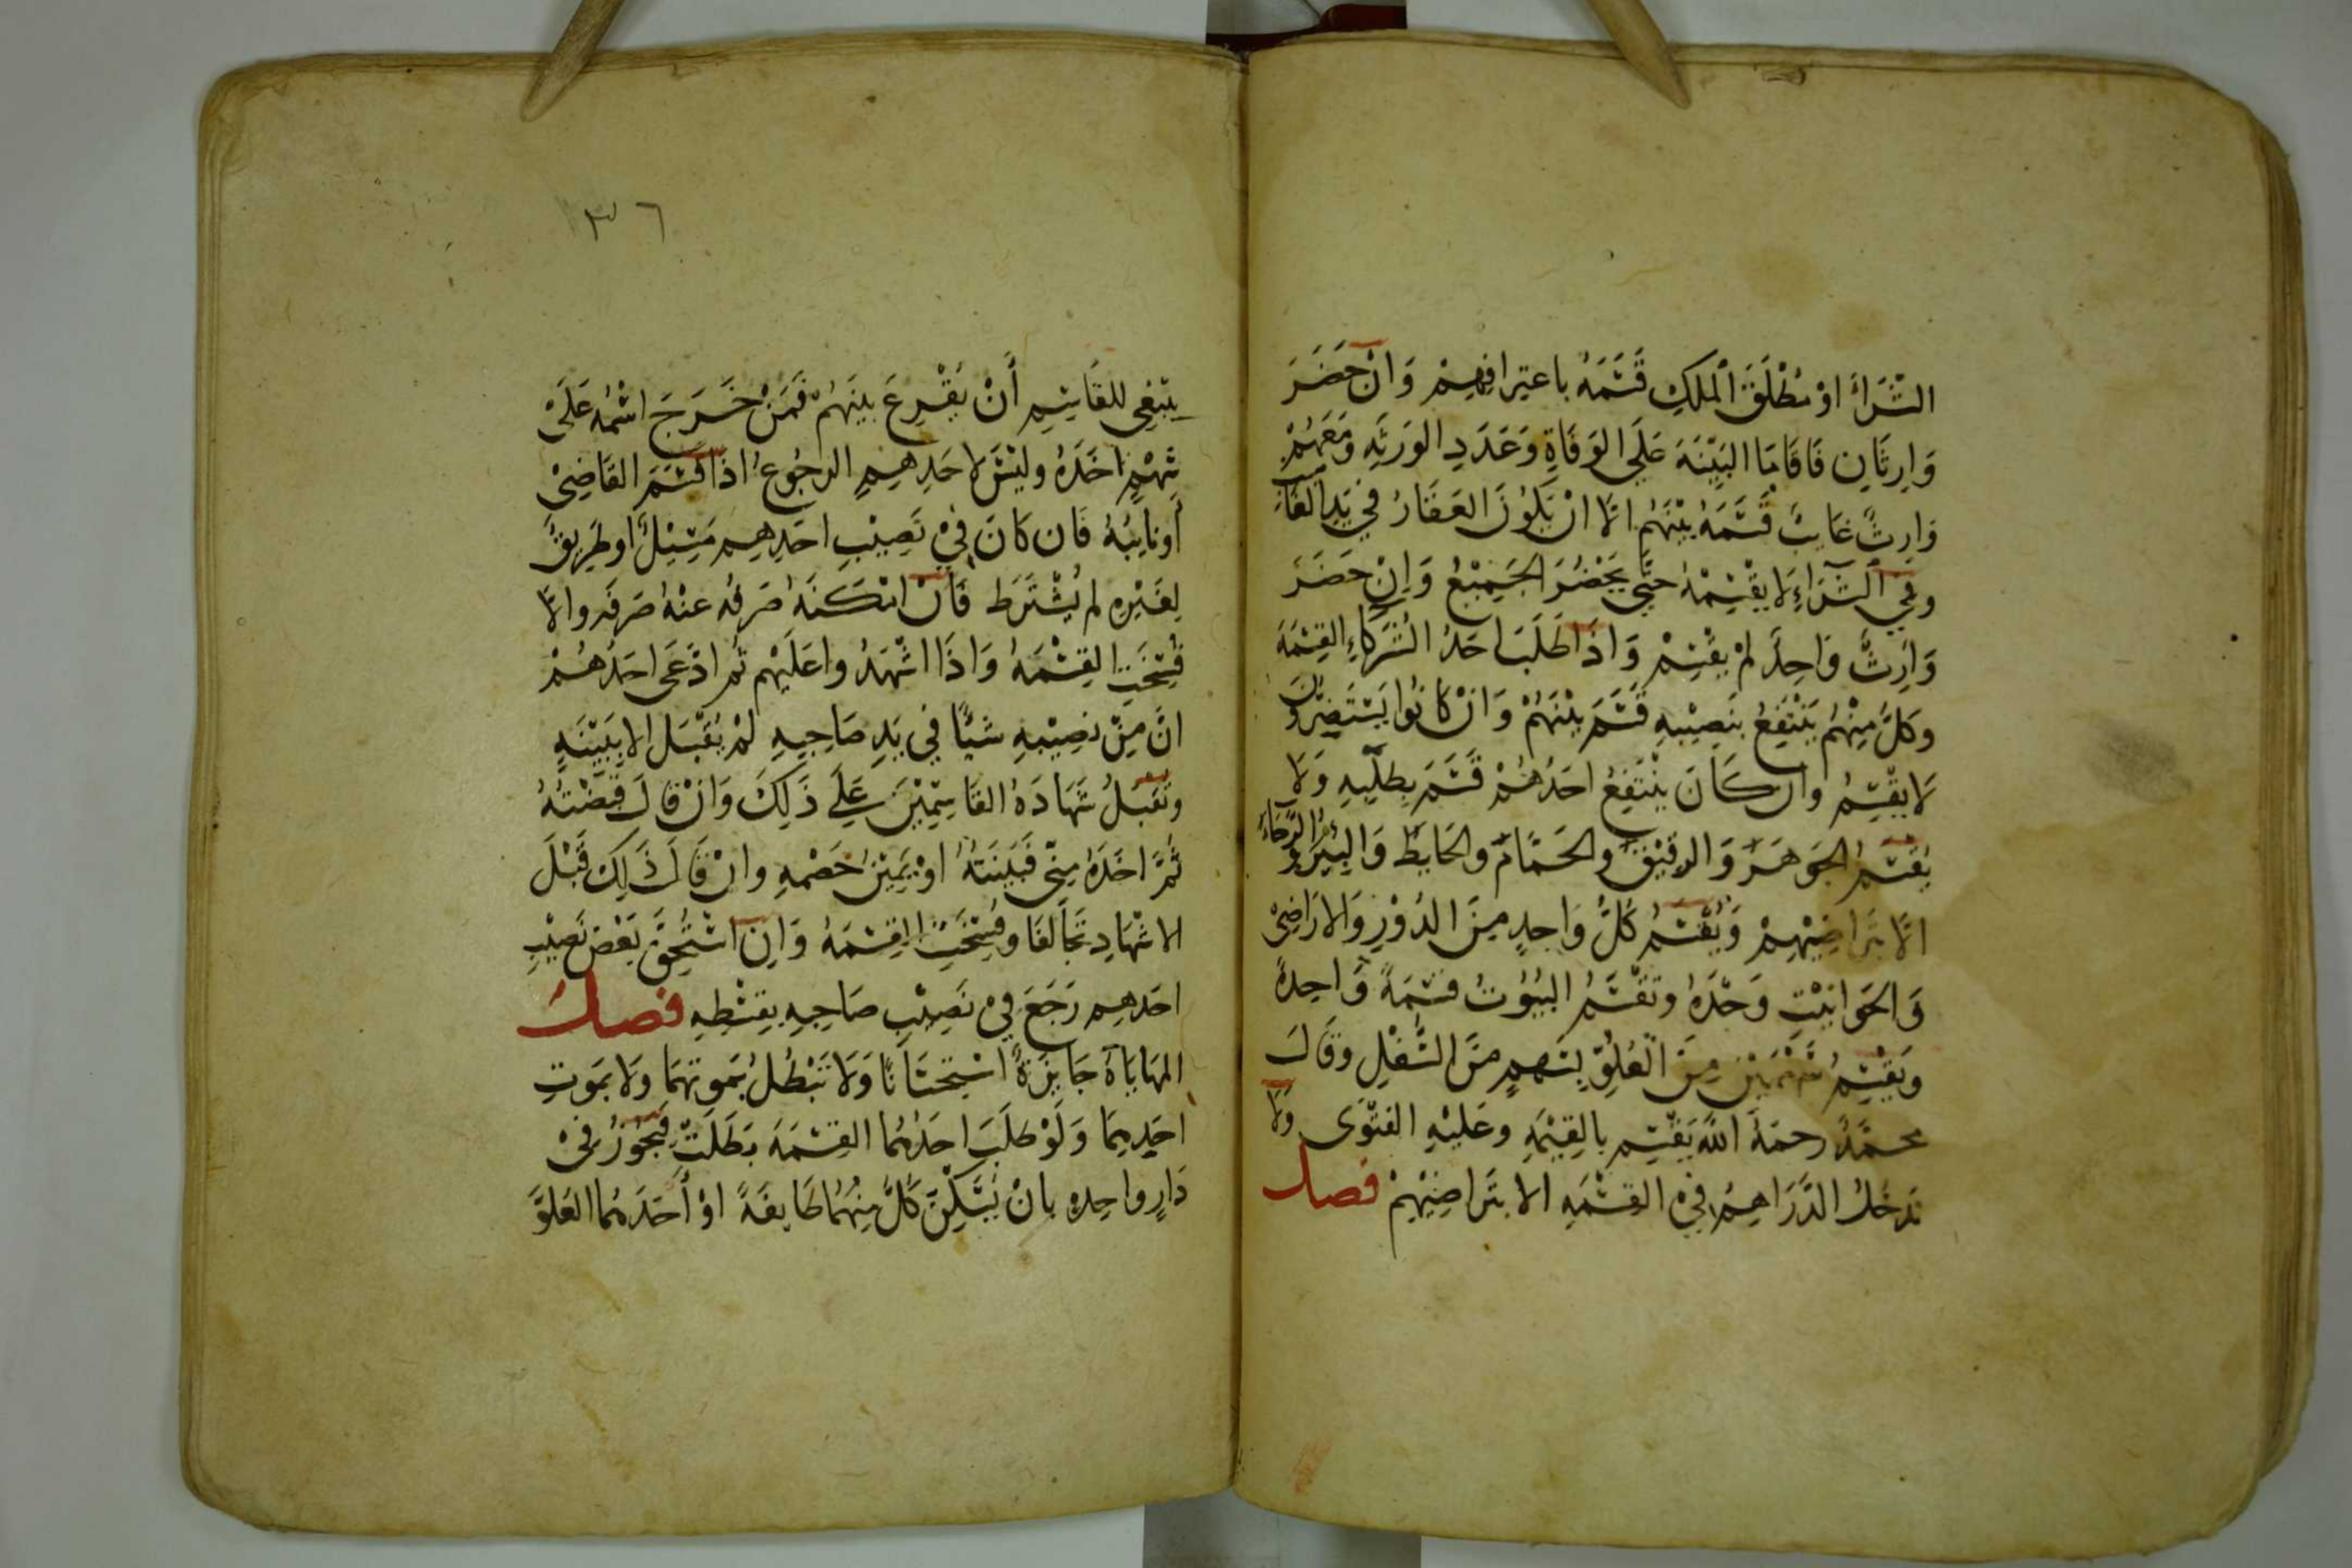 الشِّرَاءَ اوْ مُطْلَقَ الْمِلكِ قَسَمَهُ باعتِرافِهِمْ وَانْ حَضَرَ
وَارِثَانِ فَاقَامَا البَيِّنَةَ عَلَى الوَفَاةِ وَعَدَدِ الوَرَثَهِ وَمَعَهُمْ
وَارِثٌ غَايِبٌ قَسَمَهُ بَيْنَهُم الّا انْ يَكُوْنَ العَقَارُ فِي يَدِ الغَايِبِ
وفِي الشِّرَاءِ لَا يَقْسِمْهُ حتَّى يَحْضُرَ الجَمِيْعُ وَاِنْ حَضَرَ
وَارِثٌ وَاحِدٌ لَمْ يقْسِمْ وَاذَا طَلَبَ احَدُ الشُّرَكَاءِ القِسْمَةَ
وكلٌّ مِنْهُم يَنْتَفِعُ بِنَصِيْبِهِ قَسَمَ بيْنَهُمْ وَانْ كانُوا يَسْتَضِرُّونَ
لَا يقْسِمُ وان كَانَ يَنْتَفِعُ احَدُهُمْ قَسَمَ بِطَلَبِهِ وَلا
يُقْسَمُ الجَوهَرُ وَالرقِيْقُ والحَمَّامُ والحَايِطُ وَالبِيْرُ والرَّحَاءُ
الّا بتَراضِيْهِمْ وَيُقْسَمُ كُلُّ وَاحِدٍ مِنَ الدُوْرِ وَالارَاضِيْ
وَالحَوَانِيْتِ وَحْدَهُ وتُقْسَمُ البُيُوْتُ قِسْمَةً وَاحِدةً
ويَقْسِمُ سَهْمَيْنِ مِنَ العُلُوِّ بِسَهمٍ منَ السُّفْلِ وقَالَ
محمَّدٌ رحمَهُ اللّٰه يَقْسِم بالقِيْمَهِ وعَليْهِ الفتْوَى ولَا
تدخُلُ الدَّرَاهِمُ في القِسْمَهِ الا بتَراضِيْهِمْ فصل
٣٦
يَنْبَغِي للقَاسِمِ أَنْ يُقْرِعَ بينَهُم فَمَنْ خَرَجَ اسْمُهُ عَلَى
سَهْمٍ اخَذَهُ وليْسَ لاحَدِهِمِ الرجُوعُ اذَا قَسَمَ القَاضِيْ
أونايِبُهُ فَان كَانَ فيْ نَصِيْبِ احَدِهِم مَسِيْلٌ اوطَريقٌ
لِغَيْرِهِ لم يُشْتَرَط فَانْ امْكَنَهُ صَرفُه عنْهُ صَرفَه والّا
فُسِخَتِ القِسْمَهُ وَاذَا اشْهَدُ واعَلَيْهم ثُم ادَّعَى احَدُهُمْ
انَّ مِنْ نصِيْبِهِ شَيْئًا فِي يَدِ صَاحِبِهِ لمْ يُقْبَل الا بِبَيِّنَهِ
وتُقْبَلُ شَهَادَهُ القَاسِمِيْنَ عَلَى ذَلِكَ وَانْ قالَ قبَضْتُهُ
ثُمَّ اخَذَهُ مِنّي فَبَيِّنَتُهُ اوْ يَمِيْنُ خَصْمِهِ وانْ قَالَ ذَلِكَ قَبْلَ
الاشْهَادِ تحَالفَا وفُسِخَتِ القِسْمَهُ وَاِن اسْتُحِقَّ بَعْضُ نَصِيْبِ
احَدِهِم رَجَعَ فِيْ نَصِيْبِ صَاحِبِهِ بِقِسْطِهِ فصل
المهَايَاةُ جَايزَةٌ اسْتِحْسَانًا وَلَا تَبْطُلُ بمَوتهمَا ولَا بمَوتِ
احَدِهِمَا وَلَوْ طَلَبَ احَدُهُما القِسْمَهَ بَطَلَتْ فَيجُوْزُ فىْ
دَارٍ واحِدهٍ بانْ يَسْكُنَ كُلٌّ مِنْهُمَا طَايفَةً اوْ أحَدَهُما العُلوَّ